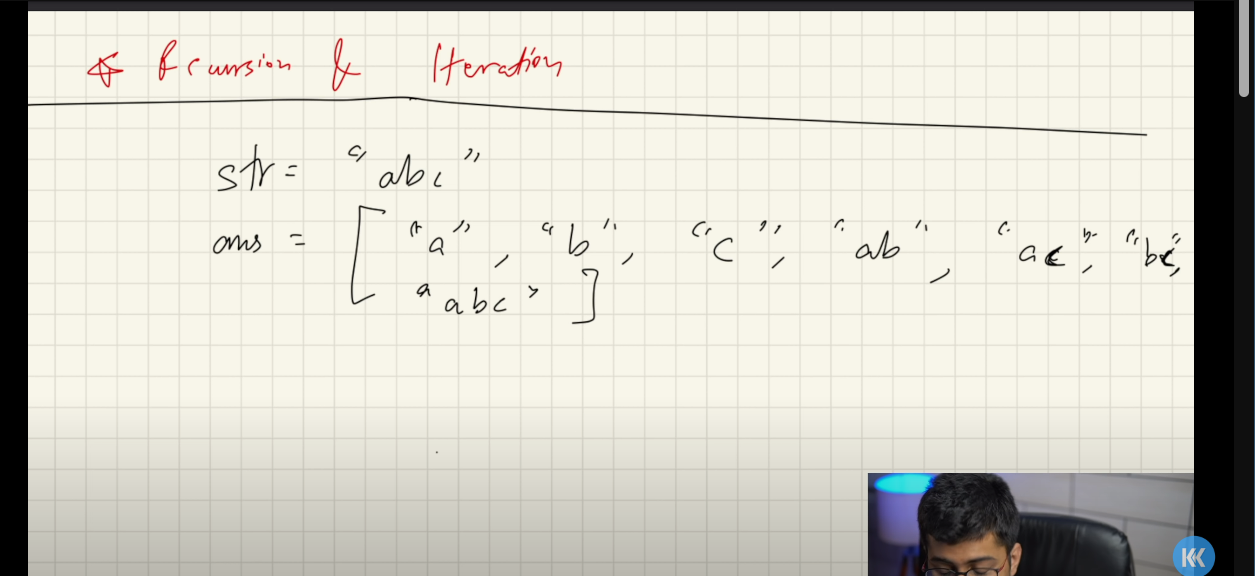 * Recursion & Iteration
str = "abc"
ans = ["a", "b", "c", "ab", "ac", "bc",
"abc"]
KK